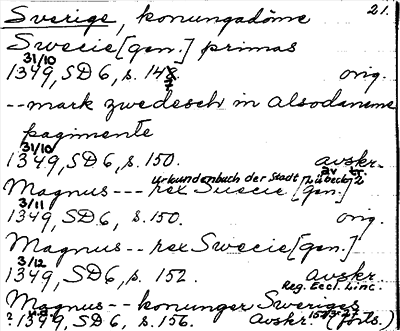 Sverige, konungadöme 21.
Swecie [gen.] primas
31/10
1349, SD 6, s. 147 orig.
--mark zwedesch in alsodaneme
pagimente
31/10
1349, SD 6, s. 150. avskr.
Urkundenbuch der Stadt Lübeck 2
Magnus --- rex Suecie [gen.]
3/11
1349, SD 6, s. 150. orig.
Magnus -- rex Swecie [gen.]
3/12
1349, SD 6, s. 152. avskr.
Reg. Eccl. Linc.
Magnus -- konunger Sweriges
1349, SD 6, s. 156. avskr. (forts.)